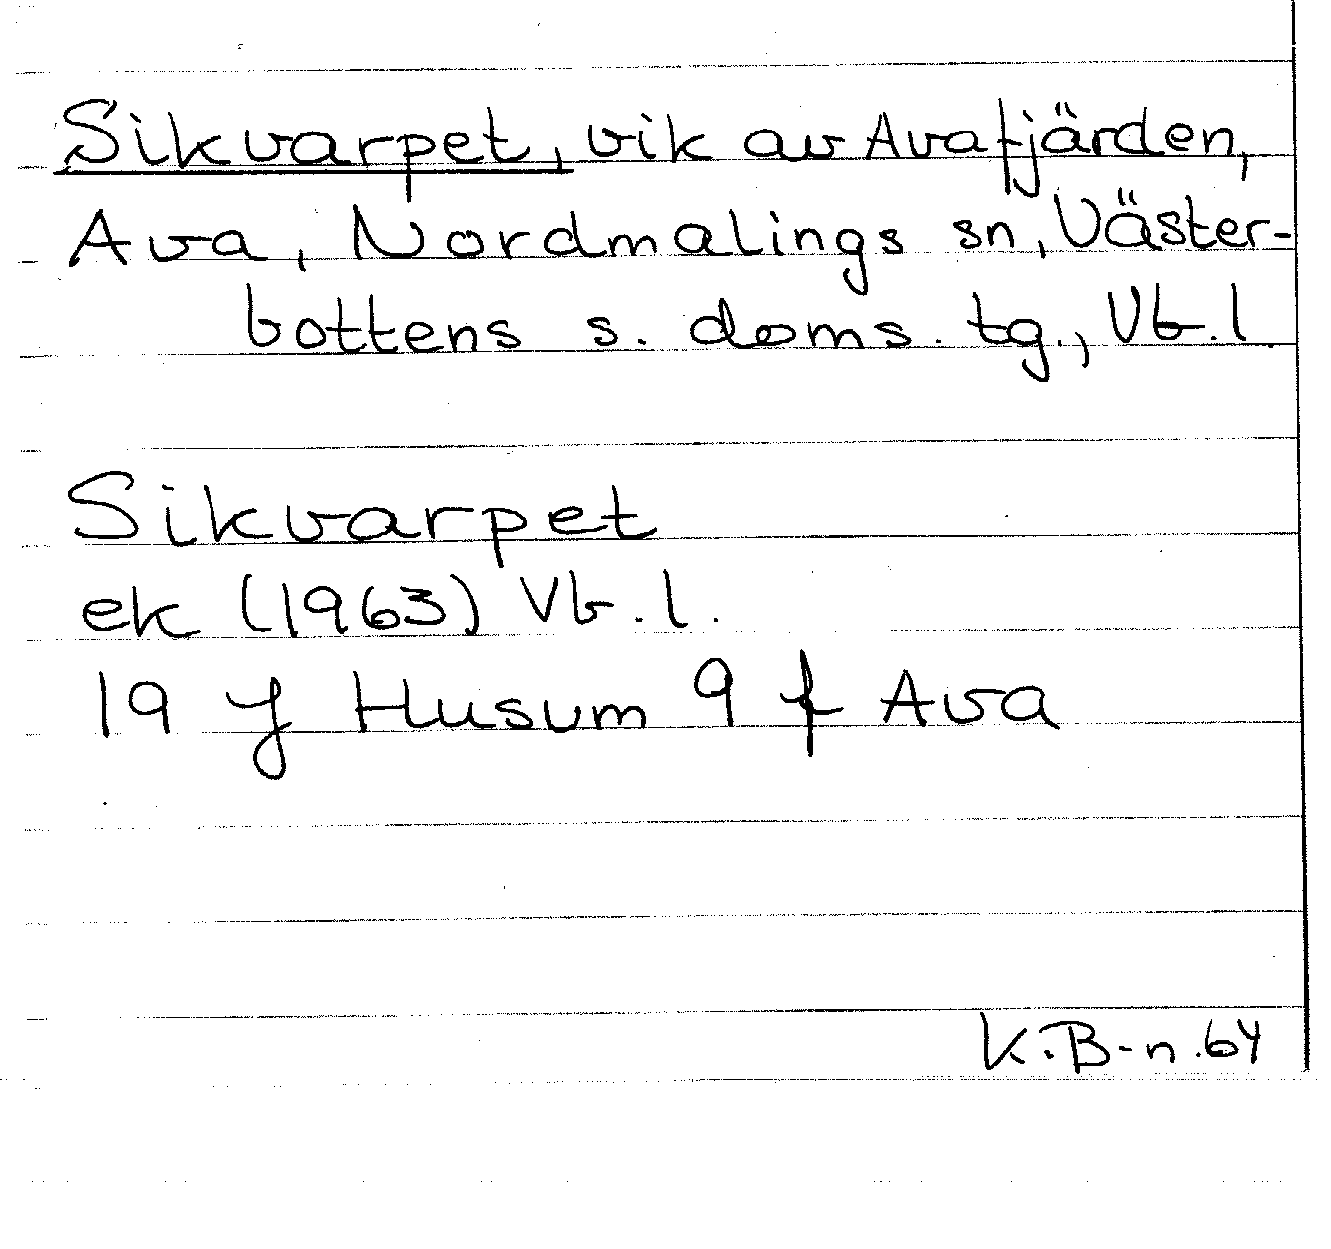 Sikvarpet, vik av Avafjärden,
Ava, Nordmalings sn, Väster-
bottens s. doms. tg., Vb. l
Sikvarpet
ek (1963) Vb. l.
19 J Husum 9 f Ava
K.B-n.64